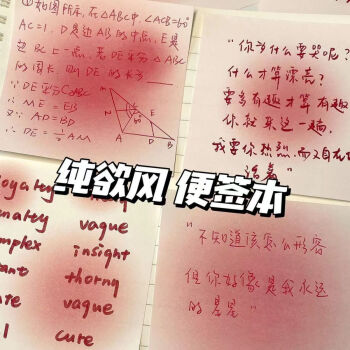 ①如图所示,在△ABC中,∠ACB=60°
AC=1,D是边AB的中点,E是
边BC上一点,若DE平分△ABC
的周长,则DE的长为
∵DE平分CABC
∴ME=EB
又∵AD=BD
∴DE=½AM
M
C
E
A
D
B
"你为什么要哭呢?
什么才算漂亮?
要多有趣才算有趣
你就来这一趟,
我要你热烈而又自在
纯欲风 便签本
loyalty
vague
insight
thorny
vague
cure
"不知道该怎么形容
但你好像是我永远
的星星"